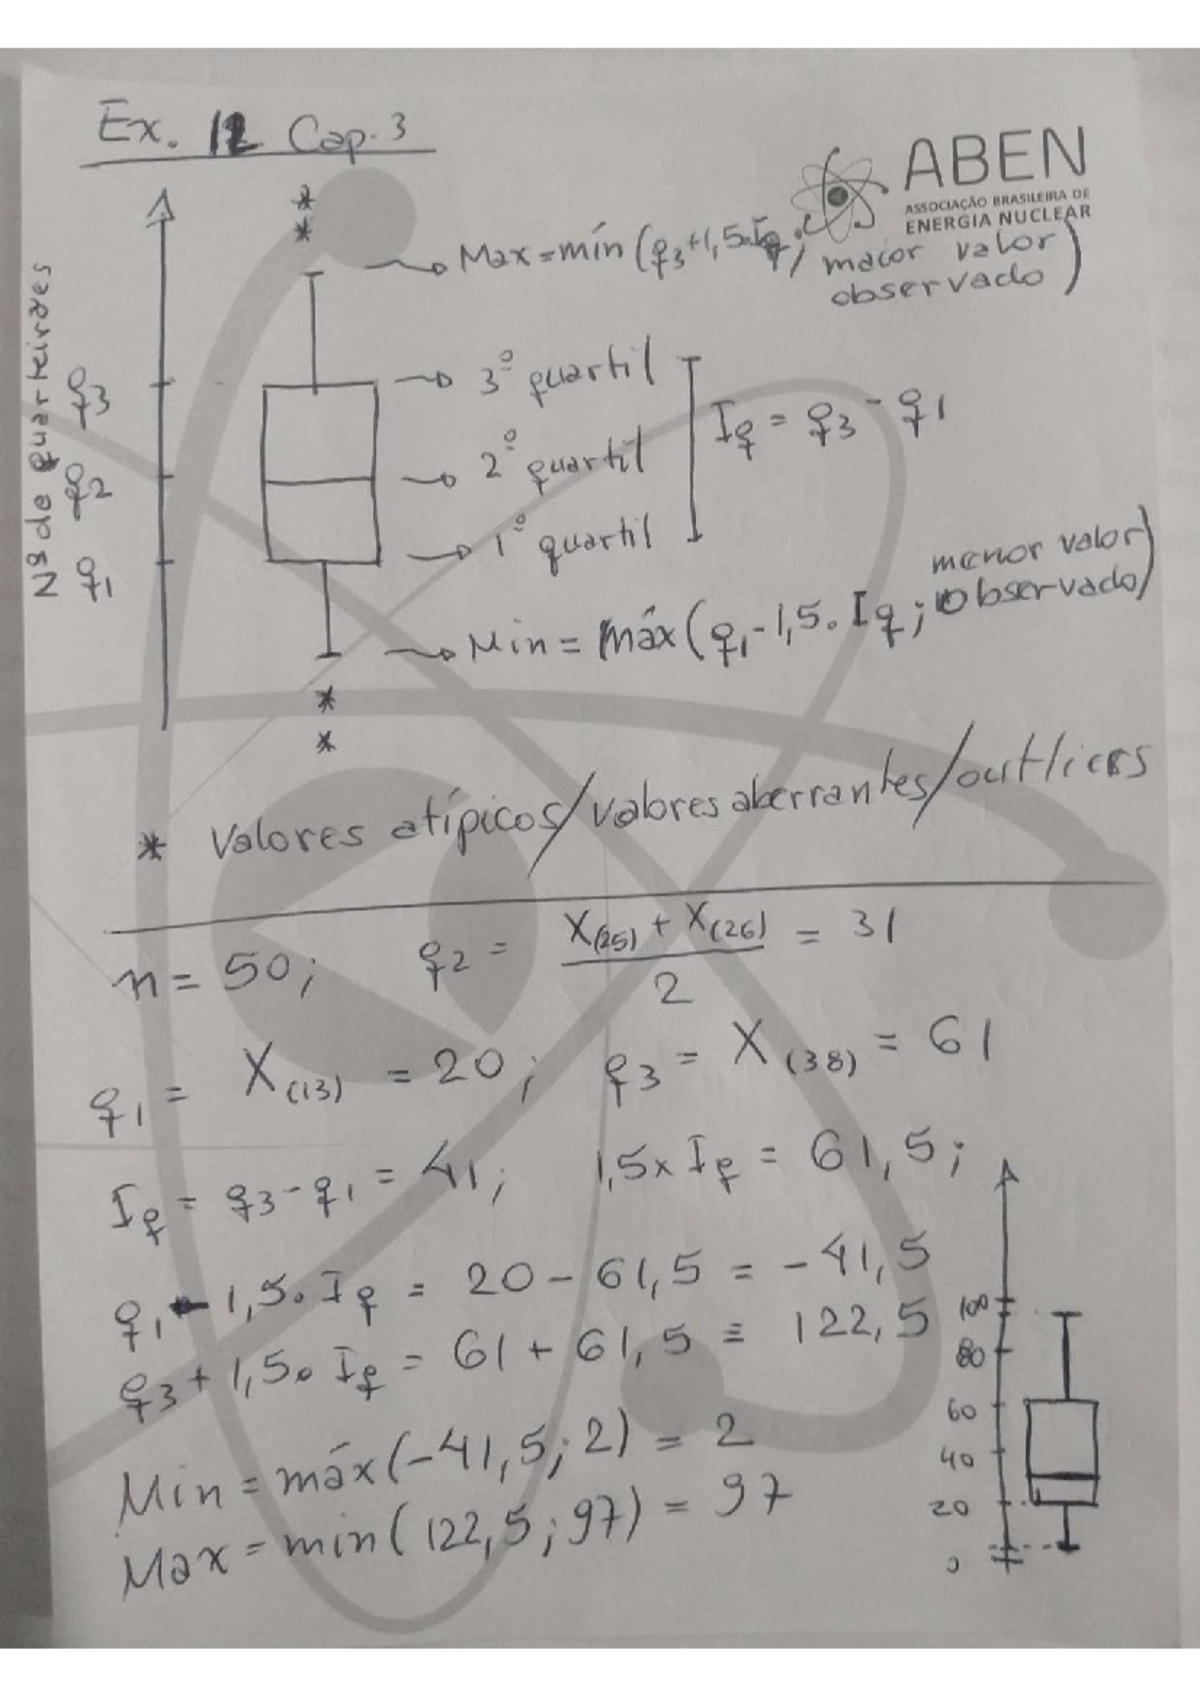 Ex. 12 Cap. 3
ABEN
ASSOCIAÇÃO BRASILEIRA DE
ENERGIA NUCLEAR
Nº de quarteirões
*
*
Max = mín (q3+1,5.Iq; maior valor
observado)
q3
3º quartil
Iq = q3 - q1
q2
2º quartil
q1
1º quartil
Min = máx (q1 - 1,5. Iq; menor valor
observado)
*
*
* Valores atípicos/valores aberrantes/outliers
n = 50; q2 = X(25) + X(26) / 2 = 31
q1 = X(13) = 20; q3 = X(38) = 61
Iq = q3 - q1 = 41; 1,5 x Iq = 61,5;
q1 - 1,5. Iq = 20 - 61,5 = - 41,5
q3 + 1,5. Iq = 61 + 61,5 = 122,5
Min = máx (-41,5; 2) = 2
Max = min (122,5; 97) = 97
100
80
60
40
20
0